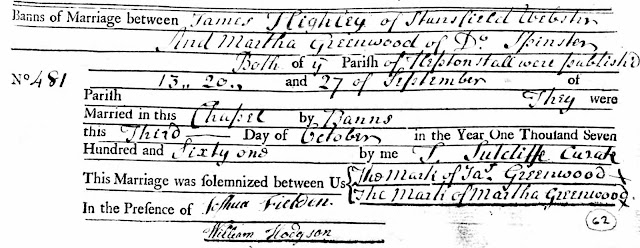 Banns of Marriage between James Highley of Stansfield Webster
And Martha Greenwood of Do. Spinster
Both of ye Parish of Heptonstall were publish'd
No 481 13,, 20,, and 27 of September of
Parish They were
Married in this Chapel by Banns
this Third Day of October in the Year One Thousand Seven
Hundred and Sixty one by me T. Sutcliffe Curate
This Marriage was solemnized between Us The Mark of Jas. Greenwood X
The Mark of Martha Greenwood X
In the Presence of Joshua Fielden.
William Hodgson
62